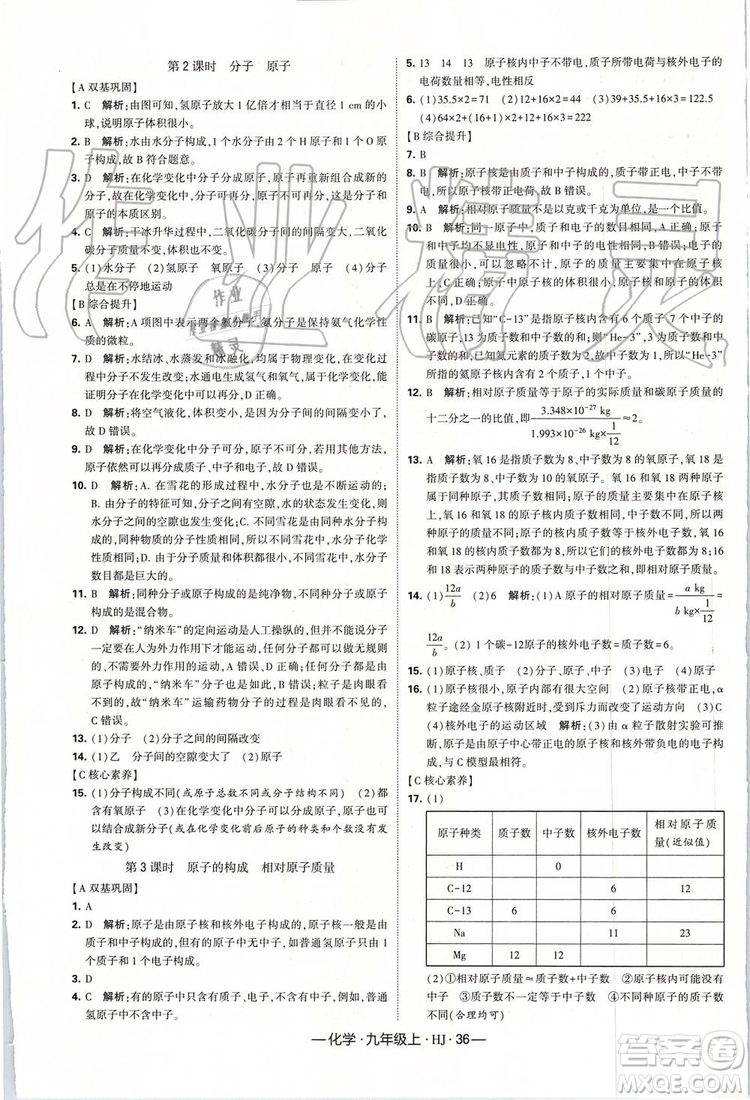 第2课时 分子 原子
【A 双基巩固】
1. C 解析:由图可知,氢原子放大1亿倍才相当于直径1 cm的小
球,说明原子体积很小。
2. B 解析:水由水分子构成,1个水分子由2个H原子和1个O原
子构成,B符合题意。
3. D 解析:在化学变化中分子分成原子,原子再重新组合成新的
分子,故在化学变化中,分子可分,原子不可再分,这是分子和
原子的本质区别。
4. C 解析:干冰升华过程中,二氧化碳分子间间隔变大,二氧化
碳分子体积不变。
5. (1)水分子 (2)氢原子 氧原子 氢分子 氧分子 (3)分子
总是在不停地运动
【B 综合提升】
6. A 解析:A项图中表示两个氨分子,氨分子是保持氨气化学性
质的微粒。
7. D 解析:水结冰,水蒸发和冰融化,均属于物理变化,其中水分
子不发生改变;水通电生成氢气和氧气,属于化学变化,其变化
能证明在化学变化中分子可以再分,D正确。
8. D 解析:将空气液化,体积变小,是分子间的间隔变小了,
故D错误。
9. D 解析:在化学变化中分子可分,原子不可分。若用其他方法,
原子依然可以再分成质子、中子和电子等,D错误。
10. D 解析:A. 在雪花的形成过程中,水分子都是不断运动的;
B. 由分子的特征可知,分子之间有空隙,水的状态发生改变,
分子间的空隙也发生变化;C. 不同雪花都是由水分子构成
的,相同物质的分子性质相同,所以构成不同雪花的水分子化
学性质都相同;D. 由于分子质量和体积都很小,所以雪花中分
子数目都是巨大的。
11. B 解析:同种分子或原子构成的是纯净物,不同种分子或原
子构成的是混合物。
12. D 解析:“纳米车”的定向运动是人工操纵的,但不能说分子
一定要在外力作用下才能运动,因为分子一直在做无规则运
动,不需要外力作用的运动,A错误,D正确;分子是肉眼看不
到的,故“纳米车”运输药物分子是肉眼看不到的,B错误;“纳
米车”是肉眼看不到的,C错误;粒子是肉眼看不
到的,故“纳米车”运输药物分子是肉眼看不到的,
故B错误。
13. (1)分子 (2)分子之间的间隔改变
14. (1)乙 分子间的空隙变大了 (2)原子
【C 核心素养】
15. (1)分子构成不同(或原子总数不同或分子结构不同) (2)都
含有氧原子 (3)在化学变化中分子可以分成原子,原子重新
组合成新分子(或在化学变化前后原子的种类和个数没有
变化)
第3课时 原子的构成 相对原子质量
【A 双基巩固】
1. A
2. D 解析:原子是由原子核和核外电子构成的,原子核一般是由
质子和中子构成的,有一种氢原子核中没有中子。
3. D
4. C 解析:有的原子中有质子、电子,不一定含有中子,例如,普通
氢原子核内就没有中子。
5. 13 14 13 原子核内中子不带电,质子所带电荷与核外电子的
电荷数量相等,电性相反
6. (1)35.5×2=71 (2)12+16×2=44 (3)39+35.5+16×3=122.5
(4)64×2+(1×2+16)×2+12+16×3=222
【B 综合提升】
7. B
8. B 解析:原子核由质子和中子构成,质子带正电,中子不带
电,所以原子核带正电荷,故B错误。
9. A 解析:相对原子质量不是以克或千克为单位,是一个比值。
10. B 解析:原子核内质子和中子的数目不一定相等,A正确;原
子中质子数等于电子数,中子数与电子数不一定相等,所以质
子、中子和电子的数目不一定相等,B错误;质子和中子构成原
子核,质子和中子的质量相当,原子的质量主要集中在原子核
上,C正确,D正确。
11. B 解析:已知“C-13”的质子数为6,中子数为7,质子数与中
子数之和为6+7=13,与其数字相等,所以“He-3”中数字3的
含义与此相同。已知氦元素的质子数为2,所以“He-3”的原
子中含有1个中子。
12. B 解析:相对原子质量等于原子的实际质量和碳原子质量
十二分之一的比值,即3.348×10⁻²⁷ kg/(1.993×10⁻²⁶ kg×1/12)≈2。
13. A 解析:氧16是指质子数为8,中子数为8的氧原子,氧18
是指质子数为8、中子数为10的氧原子。氧16和氧18两种原子
属于同种元素的不同种原子。原子的质量主要集中在原子核
上,氧16和氧18质量不相等。原子的质子数等于核外电子数,
氧16和氧18的核内质子数都为8,所以它们的核外电子数相等,
都为8。氧16和氧18的核内质子数相等,都为8。
14. (1)12a/b (2)6 解析:(1)A原子的相对原子质量=a kg/(b kg×1/12)=
12a/b。(2)1个碳-12原子的核外电子数=质子数=6。
15. (1)原子核、质子 (2)分子、原子 (3)电子 (4)原子核
16. (1)原子核很小,原子内部有很大空间 (2)原子核带正电,α
粒子途经金原子核附近时,受到斥力而改变运动方向 (3)C
(4)核外电子的运动区域 解析:由α粒子散射实验可推
断,原子是由原子中心带正电的原子核和核外带负电的电子构
成,与C模型最相符。
【C 核心素养】
17. (1)
原子种类 质子数 中子数 核外电子数 相对原子质量(近似值)
H 0
C-12 6 6 12
C-13 6 6
Na 11 23
Mg 12 12
(2)①相对原子质量≈质子数+中子数 ②原子核内可能没
有中子 ③质子数不一定等于中子数 ④质子数=核外电子数
(合理即可)
—化学·九年级上·HJ·36—
作业精灵
作业
精灵
答案圈
MXQE.COM